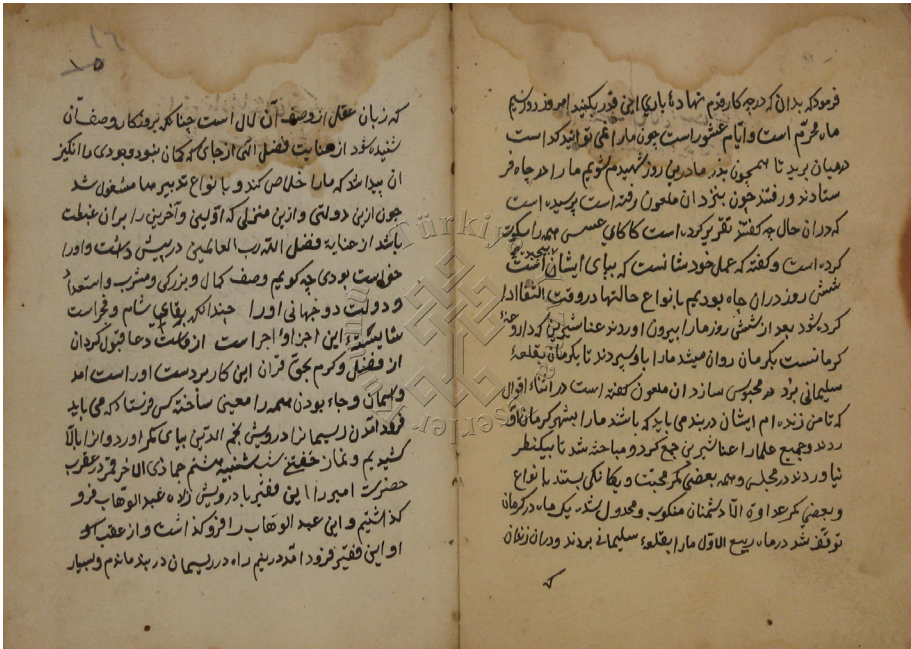 فرمود که بدان که در چه کار قدم نهادهٔ باری این قدر بکنید امروز روکنیم
ماه محرّم است و ایّام عشور است چون مارا نمی توانید کداست
درمیان برید تا همچون پدر مادرین روز شهیدم شویم مارا در چاه فر
ستادند و رفتند چون بنزد آن ملعون رفته است پرسیده است
که دران حال چه گفتند تقریر کرده است کاکای عیسی همه را سکوت
کرده است و گفته که عمل خود شانست که بپای ایشان است
شش روز دران چاه بودیم بانواع حالتها در وقت التقا ادا
کرده شود بعد از شش روز مارا بیرون اوردند عنا شیرین که داروغهٔ
کرمانست بکرمان روان میشد مارا باو سپردند تا بکرمان بقلعهٔ
سلیمانی برد و محبوس سازد ان ملعون گفته است در اثناء اقوال
که تا من زنده ام ایشان در بند می باید که باشد مارا بشهر کرمان او
ردند و جمیع علما را عنا شیرین جمع کرد و مباحثه شد تا بیکنظر
نیاوردند در مجلس و همه بعضی کمر محبّت و یکانکی بستند بانواع
و بعضی کمر عداوة الّا دشمنان منکوب و مخذول شد یک ماه در کرمان
توقف شد در ماه ربیع الاوّل مارا بقلعهٔ سلیمانی بردند و دران زندان
که
١٦
١٥
که زبان عقل از وصف آن لال است چنانکه بروزکار وصف آن
شنیده شود از عنایت فضل الهی از جای که کمان نبود وجودی را انگیز
ان پیدا شد که مارا خلاص کند و بانواع تدبیرها مشغول شد
چون ازین دولتی و ازین منزلی که اوّلین و آخرین را بران غبطت
باشد از عنایة فضل اللّه رب العالمین در پیش داشت و اورا
خواست بودی چه کویم وصف کمال و بزرکی و مشرب و استعداد
و دولت دو جهانی اورا چندانکه بقای شام و فجر است
شایستهٔ این اجزا و اجر است از فضلت دعا قبول کردان
از فضل و کرم بحق قران این کار بر دست اور است امد
و کهمان و جاء بودن همه را معینی ساخته کس فرستاد که می باید
فرود امدن ریسمانرا درویش نجم الدّین بپای بکمر اورد و از بالا
کشیدیم و نماز خفتن شب شنبه هشتم جماذی الاخر قمر در عقرب
حضرت امیر را این فقیر با درویش زاده عبد الوهاب فرو
کذاشتیم و این عبد الوهاب را فرو کذاشت و از عقب
او این فقیر فرود امد در نیم راه در ریسمان در بند ماندم و بسیار